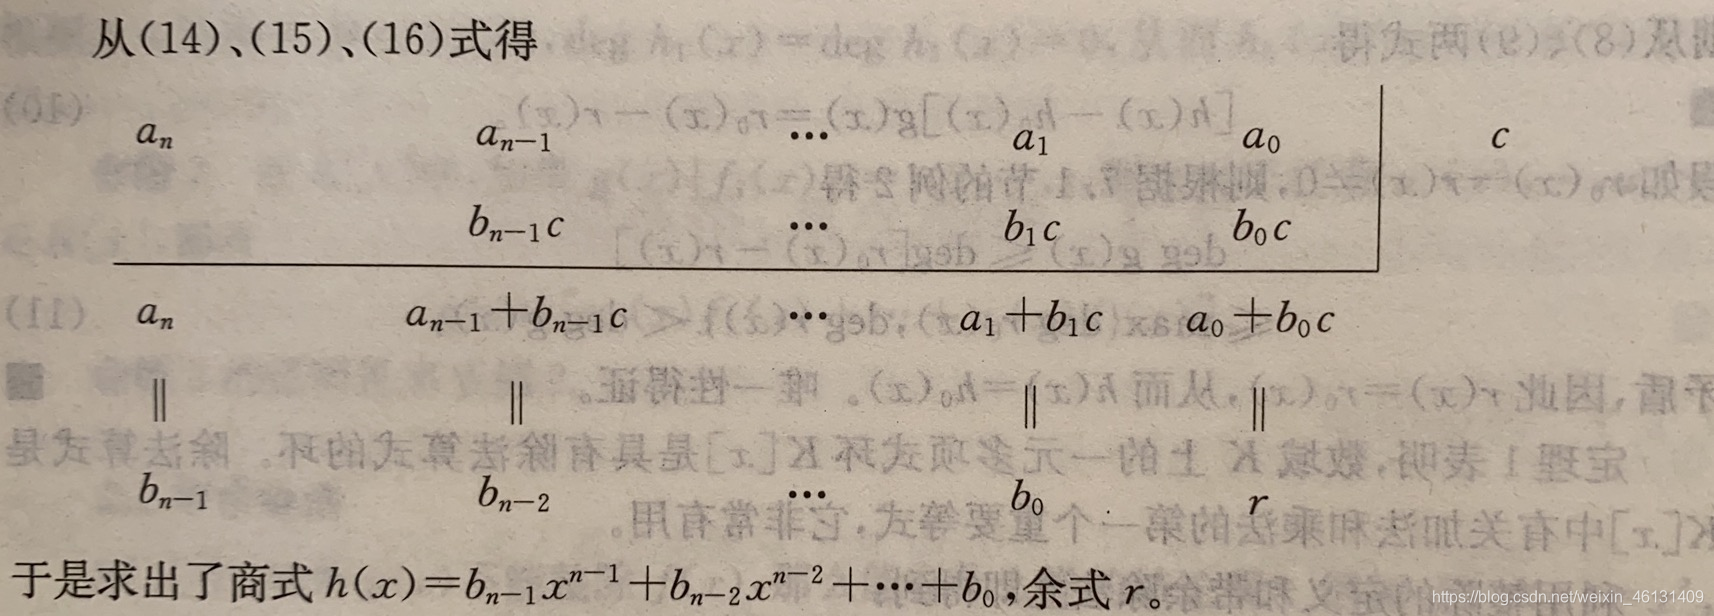 从(14)、(15)、(16)式得
aₙ aₙ₋₁ ⋯ a₁ a₀ c
bₙ₋₁c ⋯ b₁c b₀c
aₙ aₙ₋₁+bₙ₋₁c ⋯ a₁+b₁c a₀+b₀c
‖ ‖ ‖ ‖
bₙ₋₁ bₙ₋₂ ⋯ b₀ r
于是求出了商式 h(x)=bₙ₋₁xⁿ⁻¹+bₙ₋₂xⁿ⁻²+⋯+b₀,余式 r。
https://blog.csdn.net/weixin_46131409